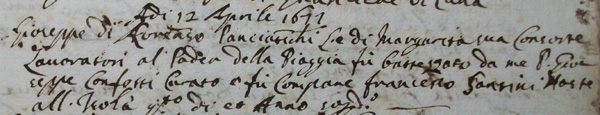 Adi 12 Aprile 1671
Gioseppe di Lorenzo Panciatichi e di Margarita sua Consorte
Lavoratori al Poder della Piaggia fu battezzato da me P. Giu
seppe Conforti Curato e fu Compare Francesco Santini Hoste
all'Isola q.to di et Anno sopd.o